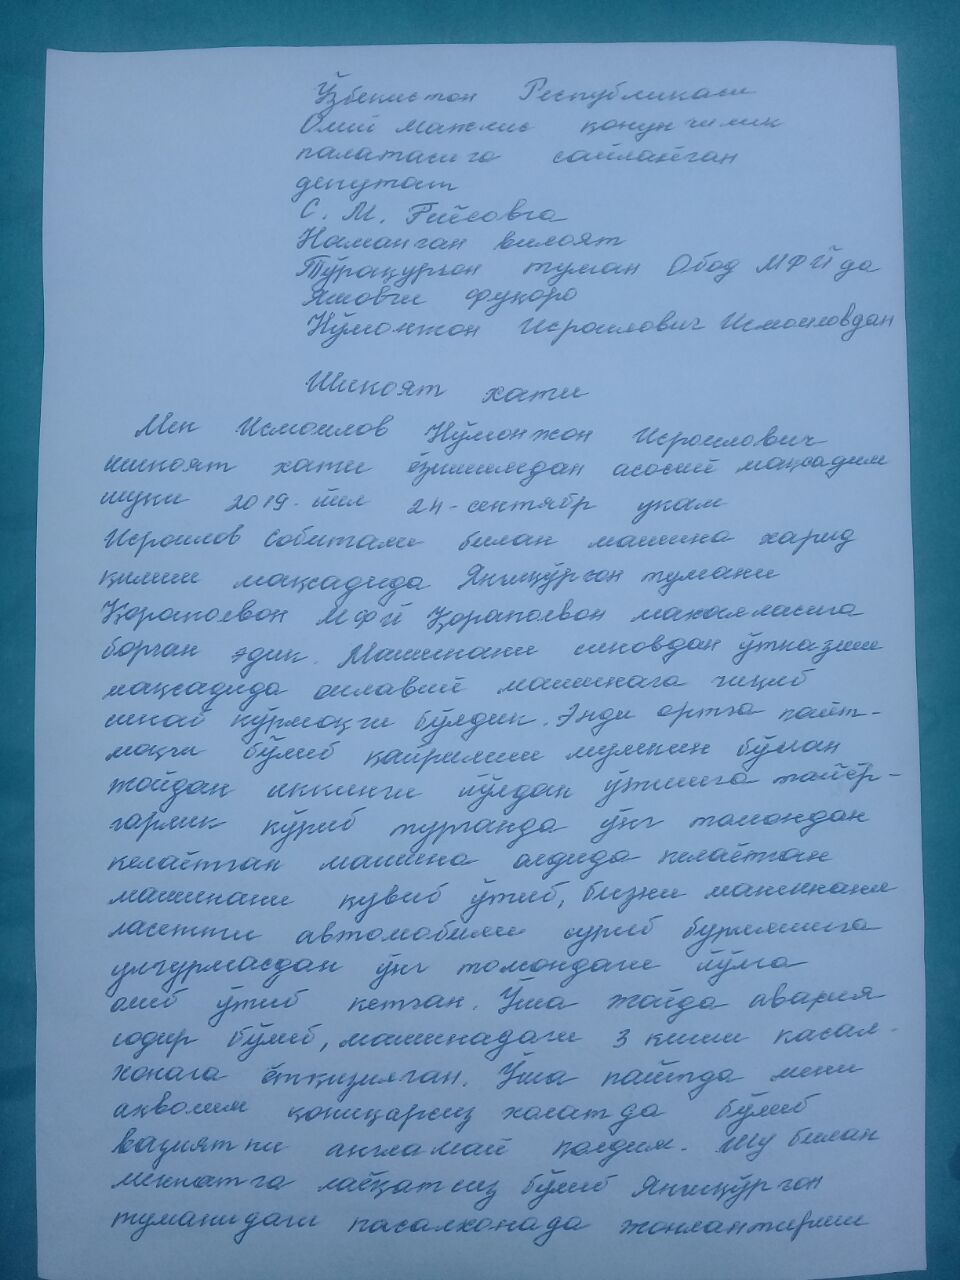 Ўзбекистон Республикаси
Олий Мажлис қонунчилик
палатасига сайланган
депутат
С. М. Гийсовга
Наманган вилоят
Тўрақурғон туман Обод МФЙ да
яшовчи фуқоро
Нўмонжон Исроилович Исмоиловдан
Шикоят хати
Мен Исмоилов Нўмонжон Исроилович
шикоят хати ёзишимдан асосий мақсадим
шуки 2019-йил 24-сентябр укам
Исроилов Собитали билан машина харид
қилиш мақсадида Янгиқўрғон тумани
Қорапоевон МФЙ Қорапоевон махалласига
борган эдик. Машинани синовдан ўтказиш
мақсадида оилавий машинага чиқиб
синаб кўрмоқчи бўлдик. Энди ортга қайт-
моқчи бўлиб қайрилиш мумкин бўлган
жойдан иккинчи йўлдан ўтишга тайёр-
гарлик кўриб турганда ўнг томондан
келаётган машина олдида келаётган
машинани қувиб ўтиб, бизни машинани
ласетти автомобили суриб бурилишга
улгурмасдан ўнг томондаги йўлга
олиб ўтиб кетган. Ўша жойда авария
содир бўлиб, машинадаги 3 киши касал-
хонага ётқизилган. Ўша пайтда мени
ахволим қониқарсиз холатда бўлиб
вазиятни англамай қолдим. Шу билан
мехнатга лаёқатсиз бўлиб Янгиқўрғон
туманидаги касалхонада жонлантириш